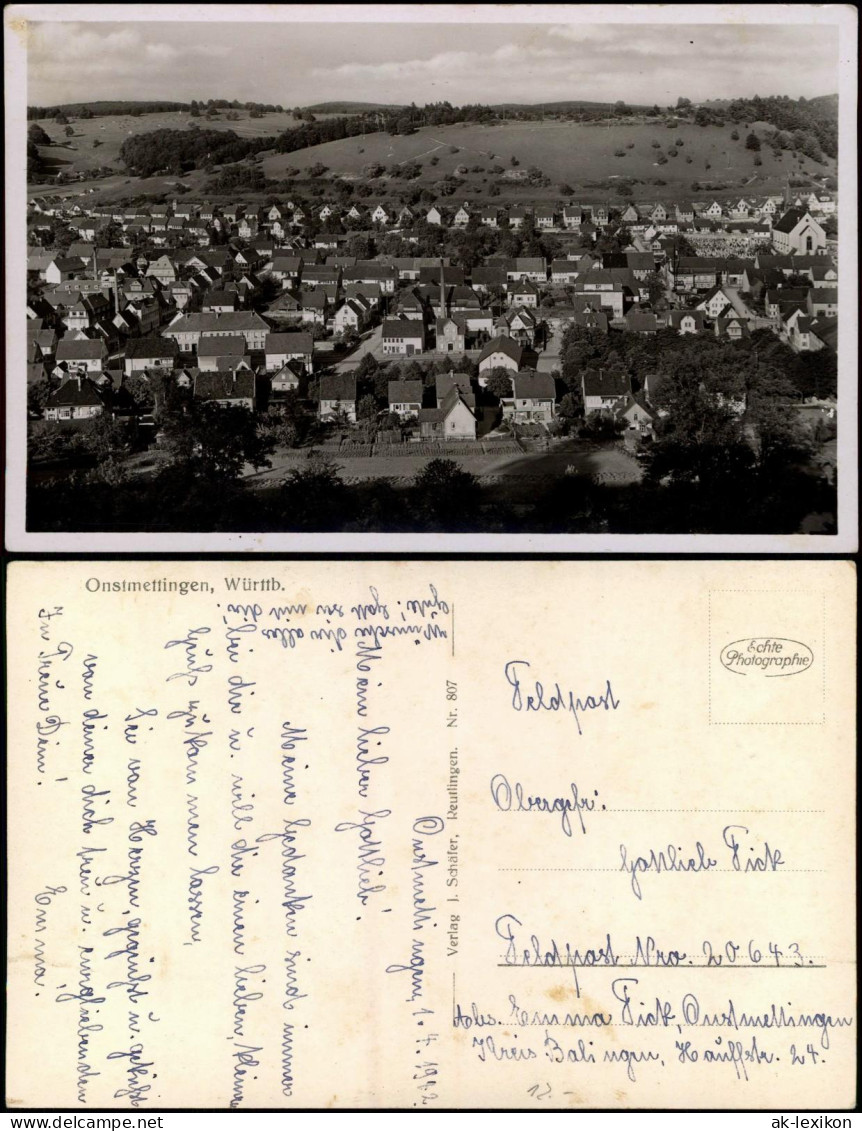 Onstmettingen, Württb.
Onstmettingen, 1.4.1942
Mein lieber Gottlieb!
Meine Gedanken sind immer
bei dir u. will dir einen lieben, kleinen
Gruß zukommen lassen,
Sei von Herzen gegrüßt u. geküßt
von deiner dich treu u. ewigliebenden
Emma.
In Treue Dein!
Wünsche dir alles
Gute! Gott sei mit dir!
Verlag J. Schäfer, Reutlingen. Nr. 807
Echte
Photographie
Feldpost
Obergefr:
Gottlieb Fick
Feldpost Nro. 20643.
Abs. Emma Fick, Onstmettingen
Kreis Balingen, Hauffstr. 24.
12.-
ak-lexikon